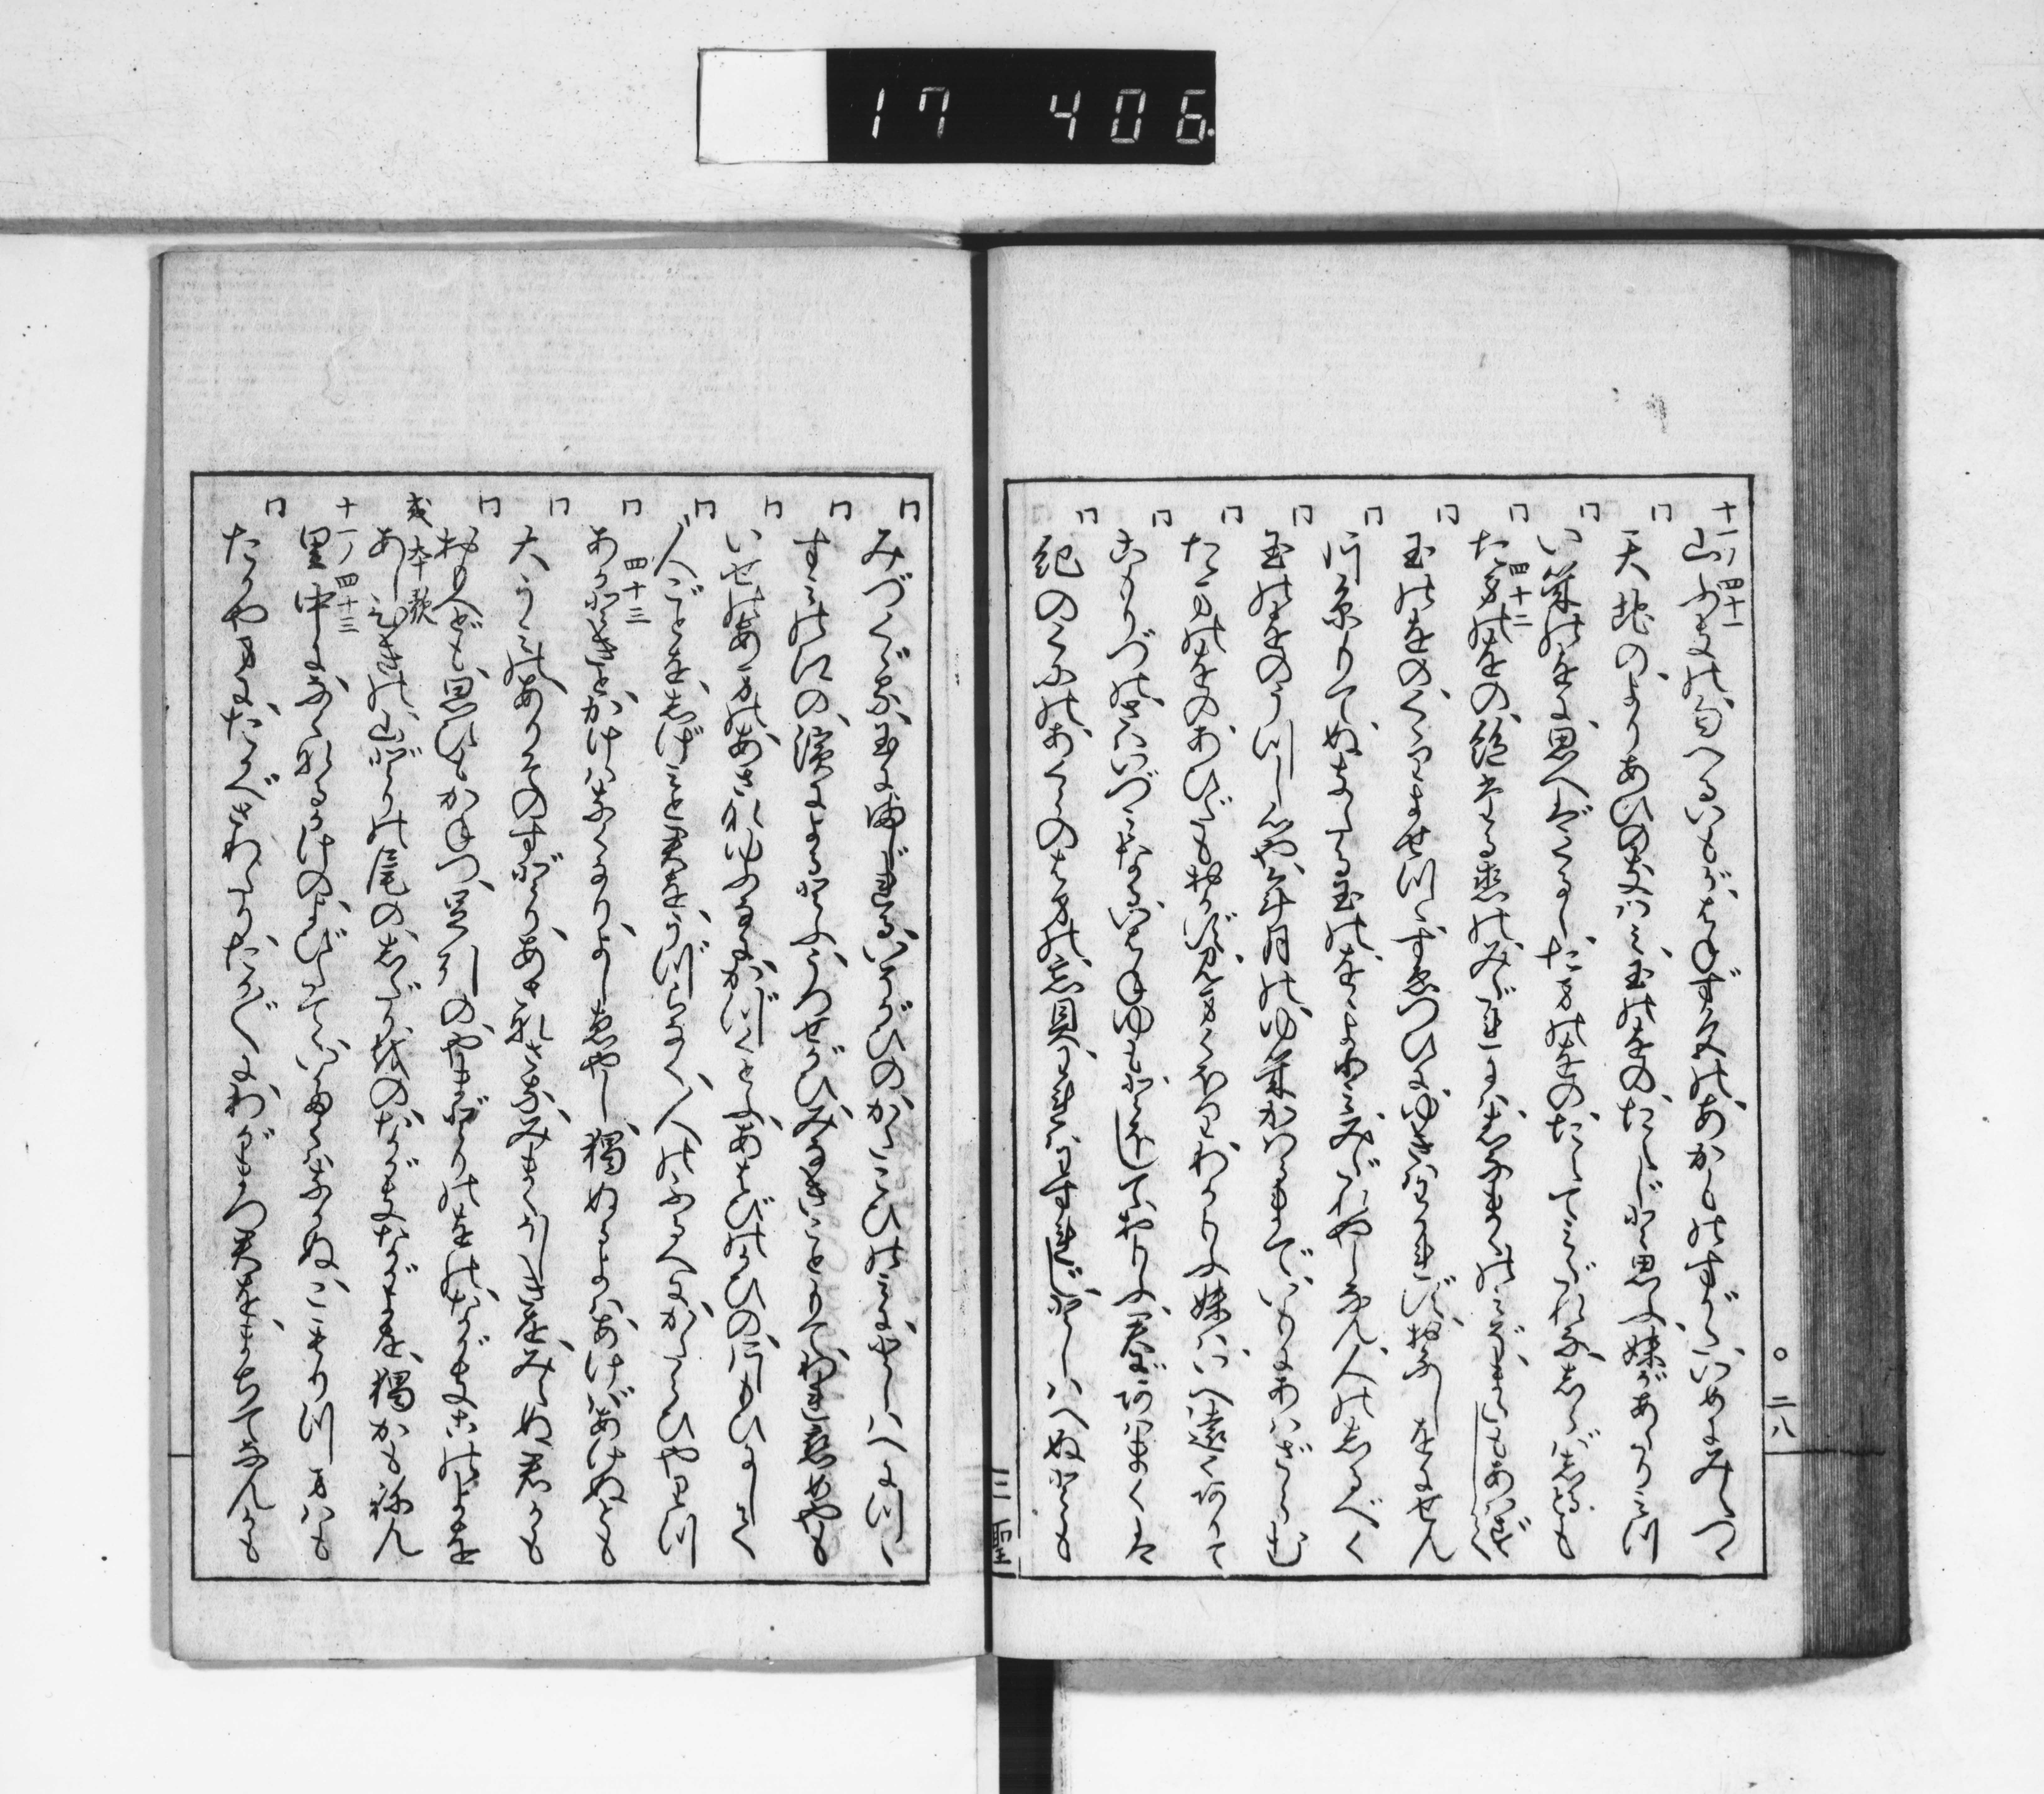 十一ノ四十一
山ぶきの、匂へるいもが、はねず色の、あかものすがた、いめにみえつゝ
冂 天地の、よりあひのきはみ、玉のをの、たえじと思ふ、妹があたりみつ
冂 いきのをに、思へばくるし、たまのをの、たえてみだれな、しらばしるとも
冂 四十二
たまのをの、絶たる恋の、みだれには、しなまくのみぞ、またもあはずて
冂 玉のをの、くゝりよせつゝ、すゑつひに、ゆきはわかれず、おなじをにあらん
冂 片糸もて、ぬきたる玉の、ををよわみ、みだれやしなん、人のしるべく
冂 玉のをのうつし心や、年月の、ゆきかはるまで、いもにあはざらむ
冂 たまのをのあひだもおかず、見まくほり、わがもふ妹は、いへ遠くありて
冂 こもりづの、さはいづみなる、いはねゆも、とほしておもふ、君にあはまくは
冂 紀のくにの、あくらのはまの、忘貝、われはわすれじ、としはへぬとも
二八
冂 みづくゝる、玉にまじれる、いそがひの、かたこひのみに、としはへにつゝ
冂 すみのえの、濱によるとふ、うつせがひ、みなきこともて、われ恋めやも
冂 いせのあまの、あさなゆふなに、かづくとふ、あはびのかひの、片もひにして
冂 人ごとを、しげみと君を、うづらなく、人のふるへに、かたらひやりつ
冂 四十三
あかときと、かけはなくなり、よしゑやし、独ぬるよは、あけばあけぬとも
冂 大うみの、ありそのすどり、あさなさな、みまくほしきを、みえぬ君かも
冂 おもへども、思ひもかねつ、足引の、やまどりのをの、ながきこのよを
或本歌
あしびきの、山どりの尾の、しだり尾の、ながながしよを、独かも祢ん
十一ノ四十三
里中に、なくなるかけの、よびたてゝ、いたくはなかぬ、こもりづまはも
冂 たかやまに、たかべさわたり、たかだかに、わがまつ君を、まちでなんかも